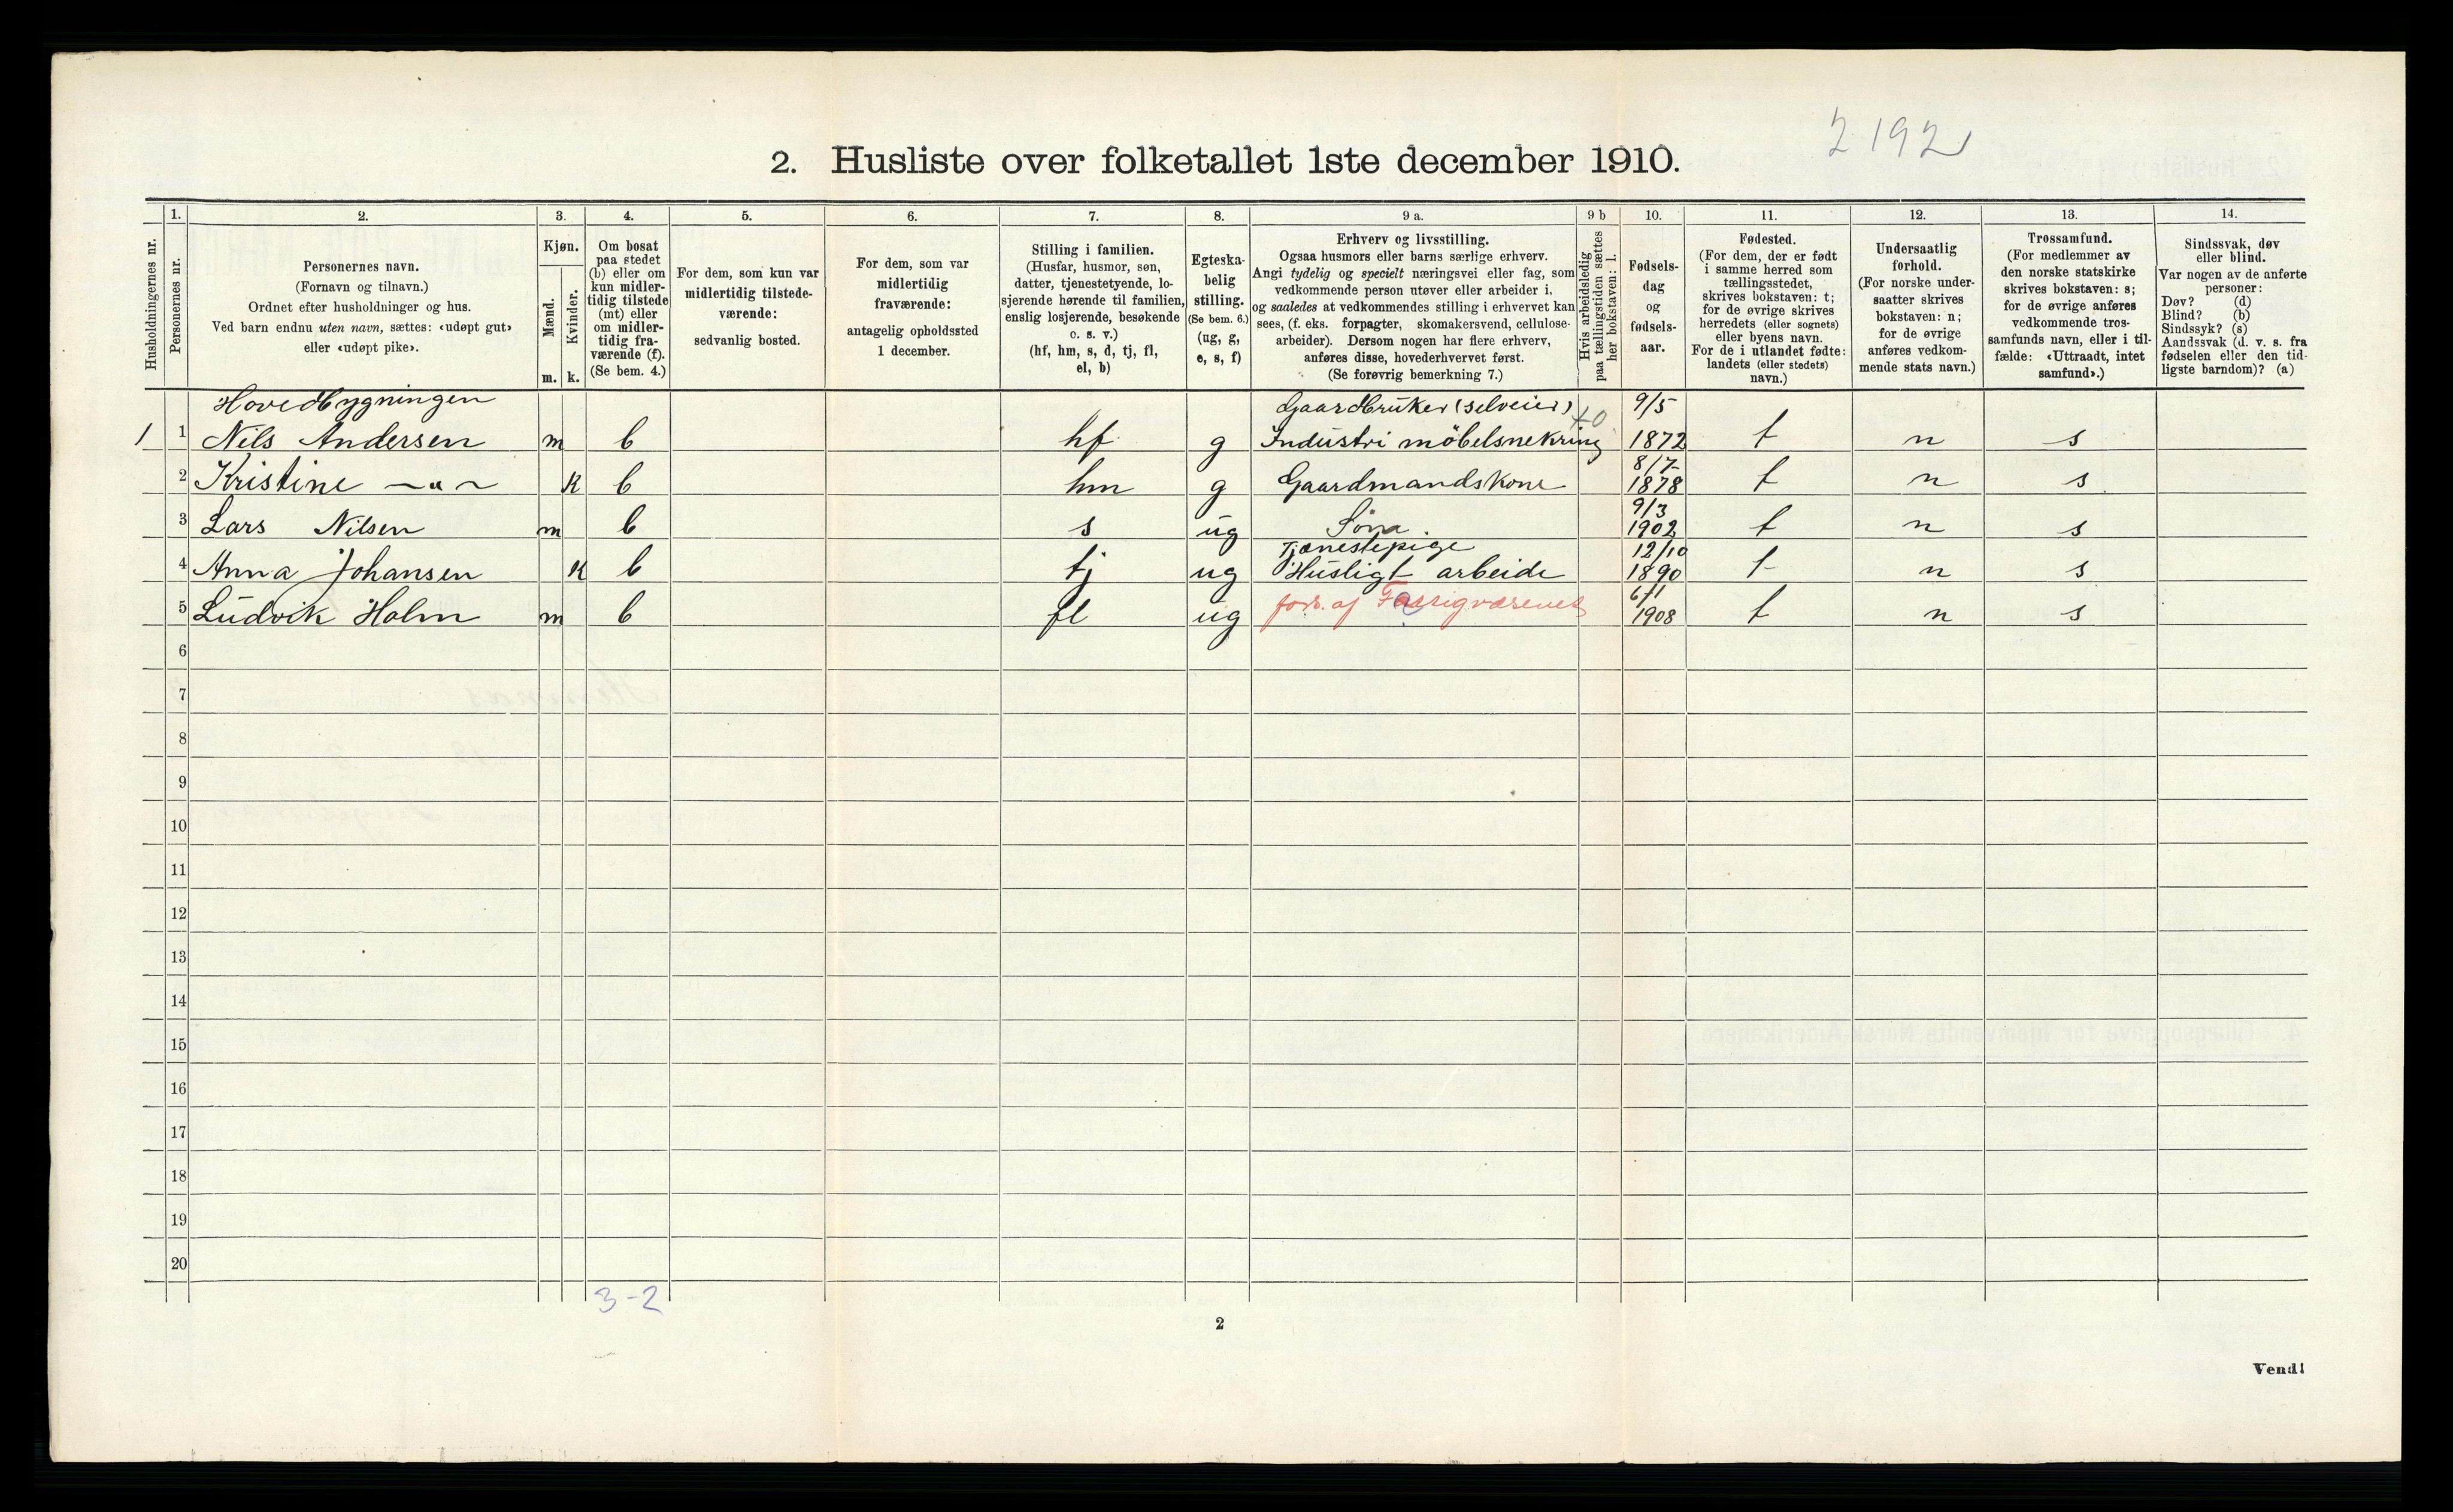 2192
2. Husliste over folketallet 1ste december 1910.
Husholdningernes nr.
1.
Personernes nr.
2.
Personernes navn.
(Fornavn og tilnavn.)
Ordnet efter husholdninger og hus.
Ved barn endnu uten navn, sættes: «udøpt gut»
eller «udøpt pike».
3.
Kjøn.
Mænd.
Kvinder.
m. k.
4.
Om bosat
paa stedet
(b) eller om
kun midler-
tidig tilstede
(mt) eller
om midler-
tidig fra-
værende (f).
(Se bem. 4.)
5.
For dem, som kun var
midlertidig tilstede-
værende:
sedvanlig bosted.
6.
For dem, som var
midlertidig
fraværende:
antagelig opholdssted
1 december.
7.
Stilling i familien.
(Husfar, husmor, søn,
datter, tjenestetyende, lo-
sjerende hørende til familien,
enslig losjerende, besøkende
o. s. v.)
(hf, hm, s, d, tj, fl,
el, b)
8.
Egteska-
belig
stilling.
(Se bem. 6.)
(ug, g,
e, s, f)
9 a.
Erhverv og livsstilling.
Ogsaa husmors eller barns særlige erhverv.
Angi tydelig og specielt næringsvei eller fag, som
vedkommende person utøver eller arbeider i,
og saaledes at vedkommendes stilling i erhvervet kan
sees, (f. eks. forpagter, skomakersvend, cellulose-
arbeider). Dersom nogen har flere erhverv,
anføres disse, hovederhvervet først.
(Se forøvrig bemerkning 7.)
9 b
Hvis arbeidsledig
paa tællingstiden sættes
her bokstaven: l.
10.
Fødsels-
dag
og
fødsels-
aar.
11.
Fødested.
(For dem, der er født
i samme herred som
tællingsstedet,
skrives bokstaven: t;
for de øvrige skrives
herredets (eller sognets)
eller byens navn.
For de i utlandet fødte:
landets (eller stedets)
navn.)
12.
Undersaatlig
forhold.
(For norske under-
saatter skrives
bokstaven: n;
for de øvrige
anføres vedkom-
mende stats navn.)
13.
Trossamfund.
(For medlemmer av
den norske statskirke
skrives bokstaven: s;
for de øvrige anføres
vedkommende tros-
samfunds navn, eller i til-
fælde: «Uttraadt, intet
samfund».)
14.
Sindssvak, døv
eller blind.
Var nogen av de anførte
personer:
Døv? (d)
Blind? (b)
Sindssyk? (s)
Aandssvak (d. v. s. fra
fødselen eller den tid-
ligste barndom)? (a)
Hovedbygningen Gaardbruker (selveier) 9/5
1 1 Nils Andersen m b hf g Industri möbelsnekring 1872 t n s
8/7
2 Kristine —〃— k b hm g Gaardmandskone 1878 t n s
9/3
3 Lars Nilsen m b s ug Søn 1902 t n s
Tjenestepige 12/10
4 Anna Johansen k b tj ug Husligt arbeide 1890 t n s
6/1
5 Ludvik Holm m b fl ug fors. af Fattigvæsenet 1908 t n s
6
7
8
9
10
11
12
13
14
15
16
17
18
19
20
3-2
2
Vend!